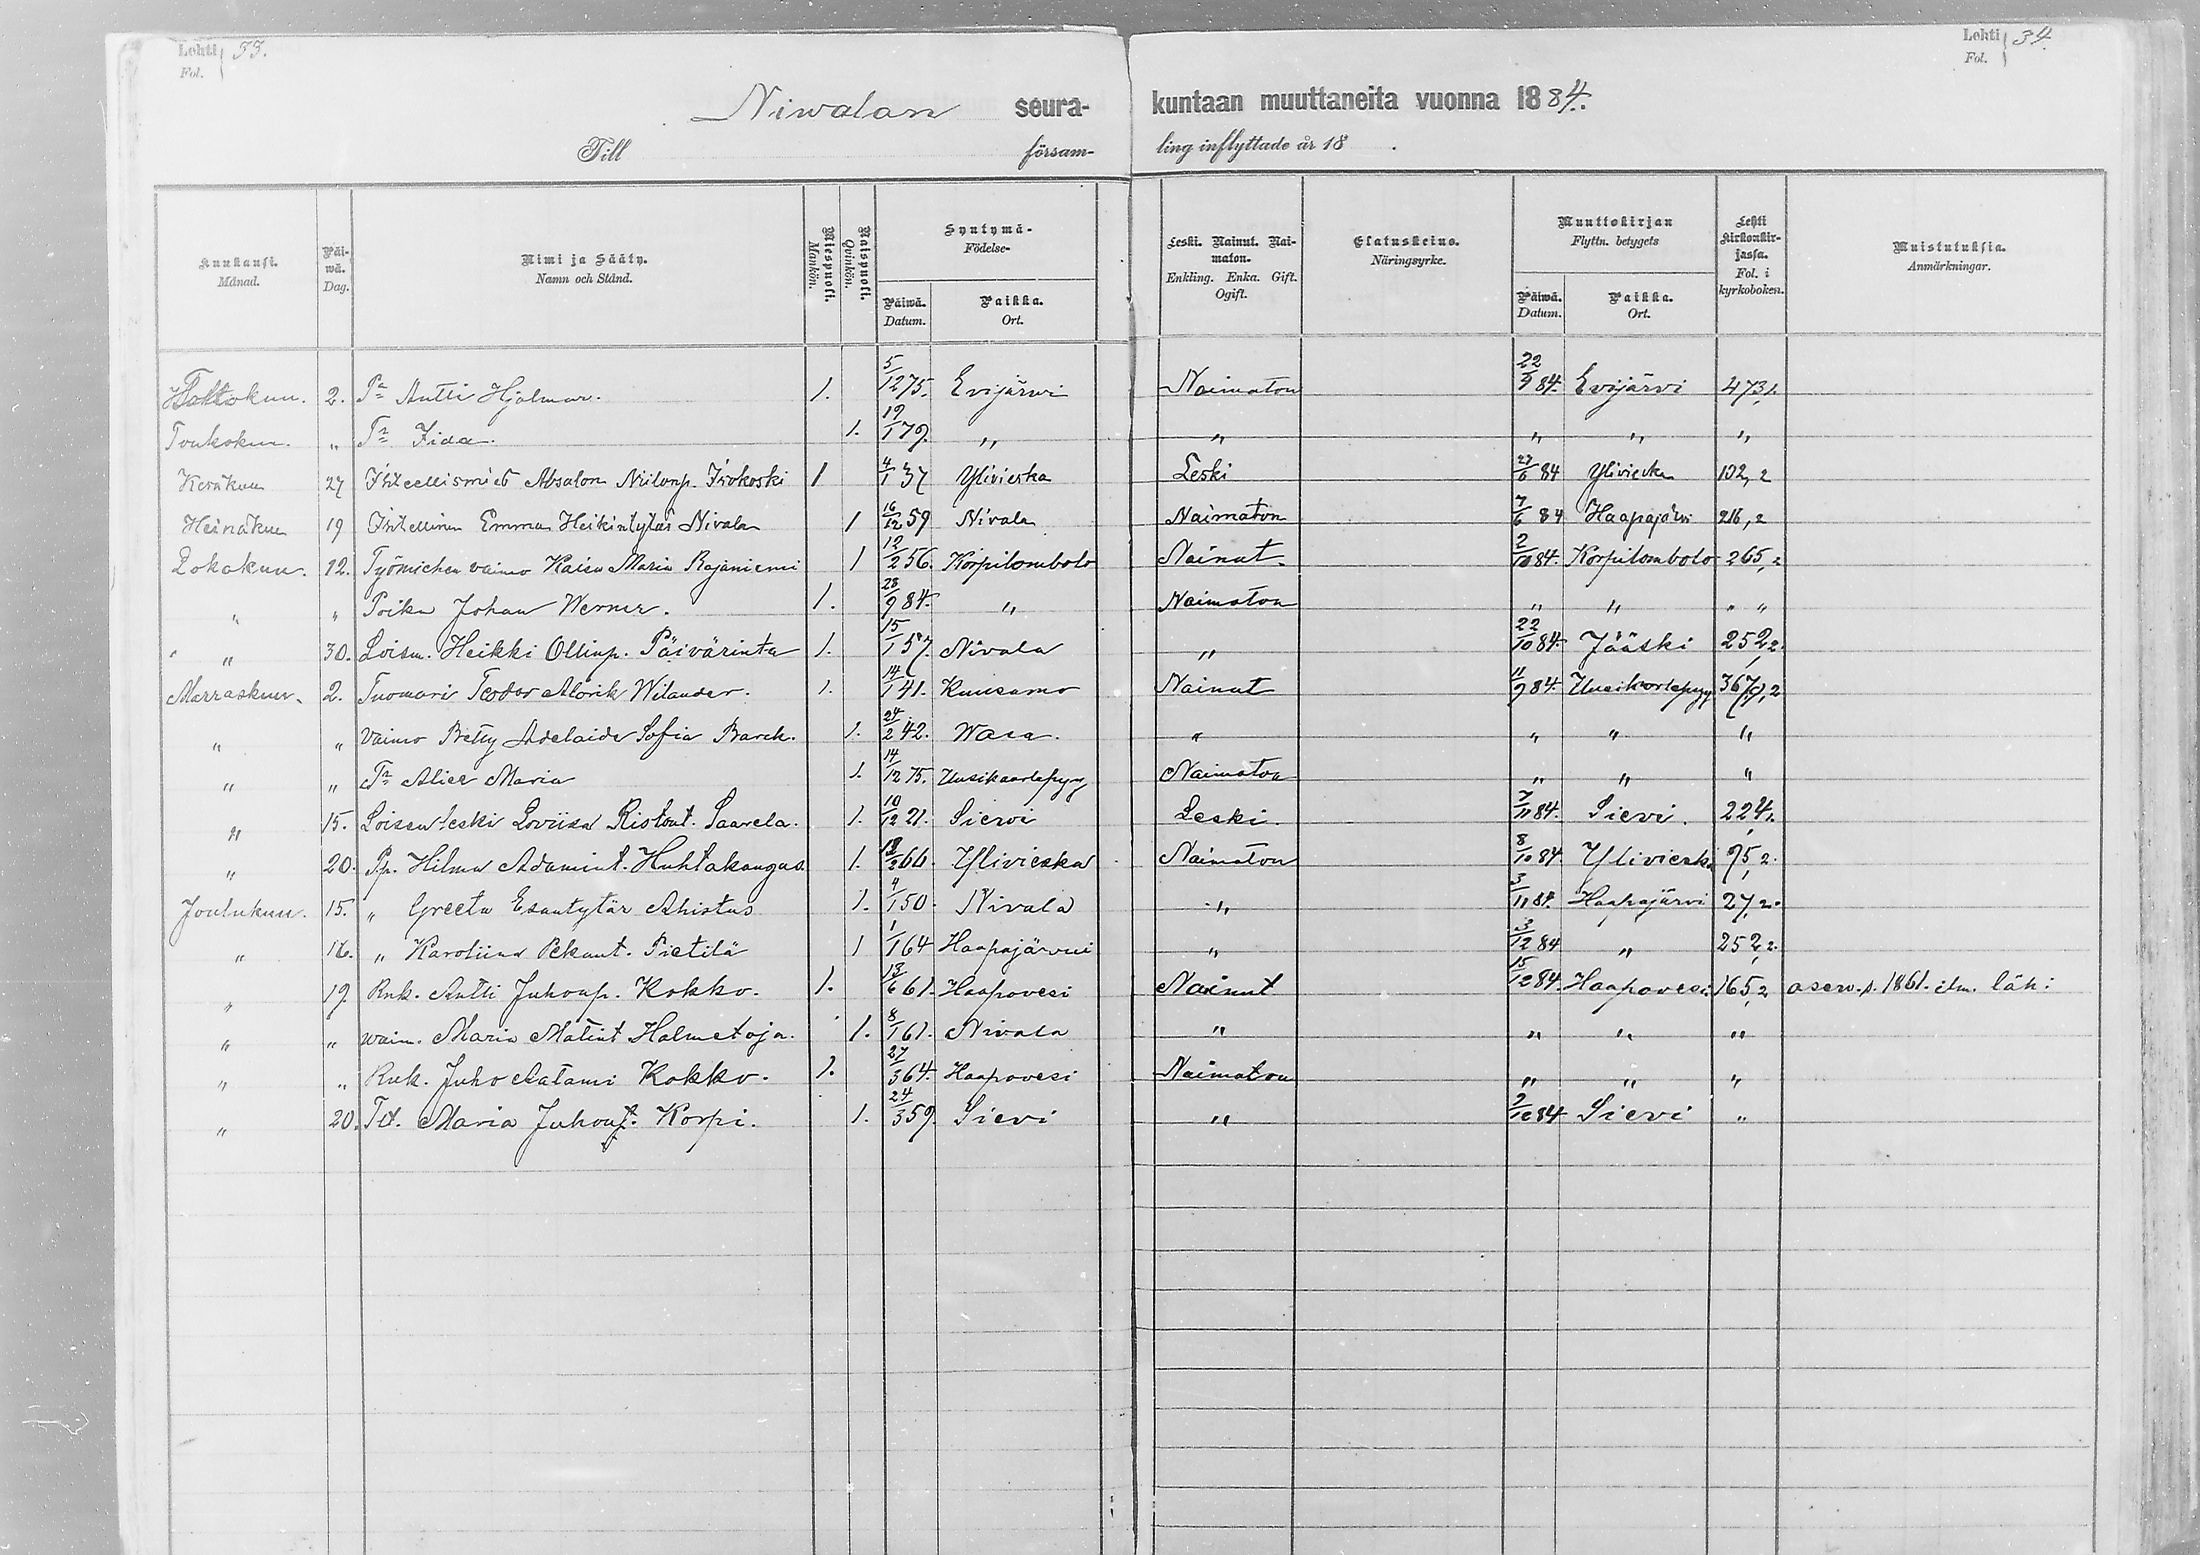 Lohti 33.
Fol.
Lohti 34.
Fol.
Niwalan seura- kuntaan muuttaneita vuonna 1884.
Till försam- ling inflyttade år 18 .
Kuukausi. Månad. Päiwä. Dag. Nimi ja Sääty. Namn och Stånd. Miespuoli. Mankön. Naispuoli. Quinkön. Syntymä- Födelse- Päiwä. Datum. Paikka. Ort. Leski. Nainut. Naimaton. Enkling. Enka. Gift. Ogift. Elatuskeino. Näringsyrke. Muuttokirjan Flyttn. betygets Päiwä. Datum. Paikka. Ort. Lehti kirkonkirjassa. Fol. i kyrkoboken. Muistutuksia. Anmärkningar.
2. Pa Antti Hjalmar. 1. 5/12 75. Evijärvi Naimaton 22/9 84. Evijärvi 473,1.
Toukokuu. „ Tr Fida. 1. 19/1 79. „ „ „ „ „
Kesäkuu 27 Itsellismies Absalon Niilonp. Isokoski 1 4/1 37 Ylivieska Leski 27/6 84 Ylivieska 132,2
Heinäkuu 19 Itsellinen Emma Heikintytär Nivala 1 16/12 59 Nivala Naimaton 7/6 84 Haapajärvi 216,2
Lokakuu. 12. Työmiehen vaimo Kaisa Maria Rajaniemi 1 12/2 56. Korpilombolo Nainut. 2/10 84. Korpilombolo 265,2
„ „ Poika Johan Werner. 1. 28/9 84. „ Naimaton „ „ „ „
„ 30. Loism. Heikki Ollinp. Päivärinta 1. 15/1 57. Nivala „ 22/10 84. Jääski 252,2.
Marraskuu. 2. Tuomari Teodor Alarik Wilander. 1. 14/1 41. Kuusamo Nainut 11/9 84. Uusikaarlepyy 367,2
„ „ Vaimo Betty Adelaide Sofia Barck. 1. 24/2 42. Wasa. „ „ „ „
„ „ Tr Alice Maria 1. 14/12 75. Uusikaarlepyy Naimaton „ „ „
„ 15. Loisen leski Loviisa Ristont. Saarela. 1. 10/12 21. Sievi Leski. 7/11 84. Sievi. 224,1.
„ 20. Pp. Hilma Adamint. Huhtakangas. 1. 13/2 66. Ylivieska Naimaton 8/10 84. Ylivieska 95,2.
Joulukuu. 15. „ Greeta Esantytär Ahistus 1. 4/1 50. Nivala „ 3/11 84. Haapajärvi 27,2.
„ 16. „ Karoliina Pekant. Pietilä 1 1/1 64 Haapajärvi „ 3/12 84 „ 252,2.
„ 19. Rnk. Antti Juhonp. Kokko. 1. 13/6 61. Haapavesi Nainut 15/12 84. Haapavesi. 165,2 asew.s. 1861. ilm. läh:
„ „ waim. Maria Matint Halmetoja. 1. 8/1 61. Nivala „ „ „ „
„ „ Rnk. Juho Aatami Kokko. 1. 27/3 64. Haapavesi Naimaton „ „ „
„ 20. Td. Maria Juhont. Korpi. 1. 24/3 59. Sievi „ 2/12 84 Sievi „